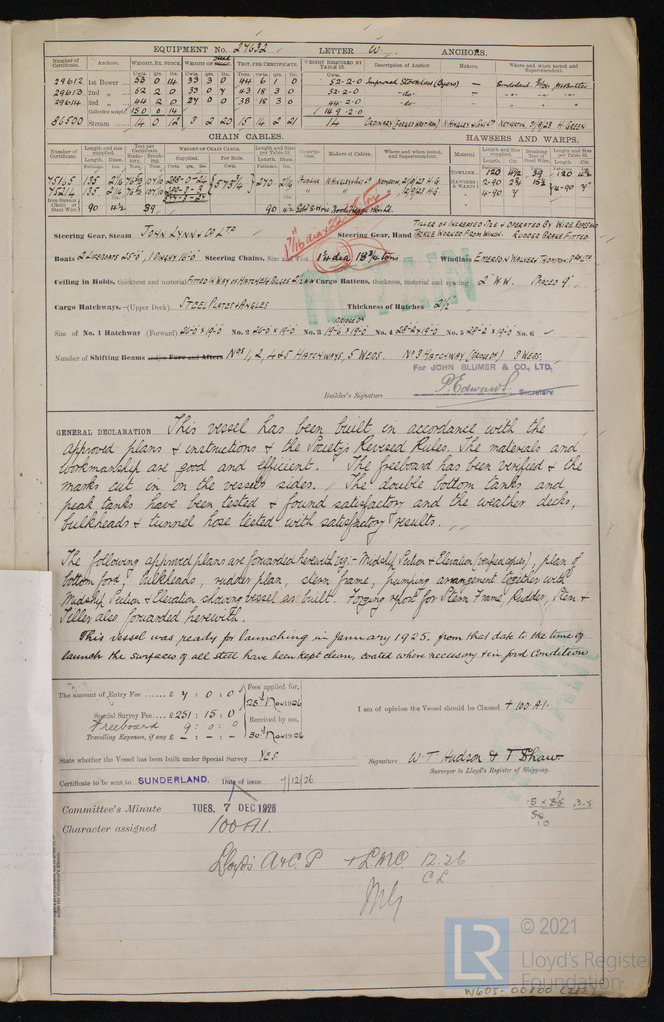 EQUIPMENT No. 27632 LETTER W. ANCHORS.
Number of Certificate. Anchors. WEIGHT, EX. STOCK. WEIGHT OF TEST, PER CERTIFICATE. WEIGHT REQUIRED BY TABLE 53. Description of Anchor. Makers. Where and when tested and Superintendent.
29612 1st Bower 53 0 14 33 3 0 44 6 1 0 52-2-0 Improved Stockless (Byers) — Sunderland
29613 2nd „ 52 2 0 33 0 7 43 18 3 0 52-2-0 -do- —
29614 3rd „ 44 2 0 27 0 0 38 18 3 0 44-2-0 -do-
Collective weight 150 0 14 149-2-0
86500 Stream 14 0 12 3 2 20 15 14 2 21 14 Ordinary N. Hingley & Sons Ltd Netherton, 7/9/23 H. GREEN
CHAIN CABLES. HAWSERS AND WARPS.
Number of Certificate. Length and size supplied. Test per Certificate. WEIGHT OF CHAIN CABLE. Length and size per Table 53. Description. Makers of Cables. Where and when tested, and Superintendent. Material Length and Size supplied. Breaking Test of Steel Wire. Length and Size per Table 53.
75165 135 2 1/16 288-0-24 573 3/4 270 2 1/16
75214 135 2 1/16
Iron Stream Chain or Steel Wire 90 4 1/2 39 90 4 1/2
TOWLINE 120 4 1/2 39 120 4 1/2
HAWSERS & WARPS 2-90 2 3/4 15 1/2
4-90 7" 4-90 7"
Steering Gear, Steam JOHN LYNN & CO LTD Steering Gear, Hand TILLER OF INCREASED SIZE & OPERATED BY WIRE ROPES AND
TACKLE WORKED FROM WINCH. RUDDER BRAKE FITTED
Boats 2 LIFEBOATS 25'0", 1 DINGHY 16'0" Steering Chains, Size and Test 1 1/16 dia 18 3/4 tons Windlass EMERSON WALKER & THOMPSON BROS LTD
Ceiling in Holds, thickness and material FITTED IN WAY OF HATCHES & BILGES 2 1/2" W.W. Cargo Battens, thickness and material 2" W.W. SPACED 9"
Cargo Hatchways.—(Upper Deck) STEEL PLATES & ANGLES Thickness of Hatches 2 1/2"
Size of No. 1 Hatchway (Forward) 26-0 x 19-0 No. 2 26-0 x 19-0 No. 3 19-6 x 19-0 No. 4 28-2 x 19-0 No. 5 28-2 x 19-0 No. 6 ✓
Number of Shifting Beams and/or Fore and Afters Nos 1, 2, 4 & 5 HATCHWAYS, 5 WEBS. No 3 HATCHWAY 3 WEBS.
For JOHN BLUMER & CO., LTD,
Builder's Signature P. Edwards. Secretary
GENERAL DECLARATION This vessel has been built in accordance with the
approved plans & instructions & the Society's Revised Rules. The materials and
workmanship are good and efficient. The freeboard has been verified & the
marks cut in on the vessel's sides. The double bottom tanks and
peak tanks have been tested & found satisfactory and the weather decks,
bulkheads & tunnel hose tested with satisfactory results.
The following approved plans are forwarded herewith viz:- Midship Section & Elevation (verified copies), plan of
bottom ford, bulkheads, rudder plan, stern frame, pumping arrangement together with
Midship Section & Elevation showing vessel as built. Forging report for Stern Frame, Rudder, Stem &
Tiller also forwarded herewith.
This vessel was ready for launching in January 1925, from that date to the time of
launch the surfaces of all steel have been kept clean, coated where necessary & in good condition
The amount of Entry Fee ...... £ 7 : 0 : 0 Fees applied for,
Special Survey Fee .... £ 251 : 15 : 0 25th Nov 1926
Freeboard 9 : 0 : 0 Received by me,
Travelling Expenses, if any £ - : - : - 30th Nov 1926
I am of opinion the Vessel should be Classed + 100 A.1.
State whether the Vessel has been built under Special Survey Yes
Signature W. T. Hudson & T Shaw
Surveyor to Lloyd's Register of Shipping.
Certificate to be sent to SUNDERLAND. Date of issue 7/12/26
Committee's Minute TUES. 7 DEC 1926
Character assigned 100 A.1.
Lloyd's A & C.P + L.M.C. 12.26
C.L
© 2021
LR Lloyd's Register Foundation
W605-00800 (2/2)